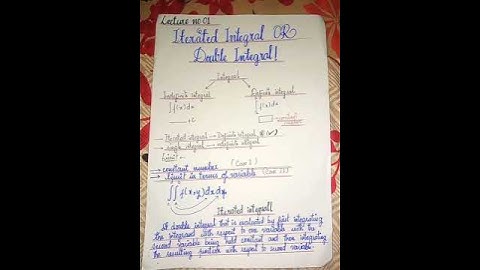 Lecture no:01
Iterated Integral OR
Double Integral!
Integral
Indefinite integral Definite integral
∫f(x)dx ∫f(x)dx
+C
constant number
→ Iterated integral → Definite integral
→ single integral → integral
Limit
→ constant number (Case I)
→ limit in terms of variable (Case II)
∫∫ f(x,y)dx dy
Iterated integral
A double integral that is evaluated by first integrating
the integrand with respect to one variable with the
second variable being held constant and then integrating
the resulting function with respect to second variable.